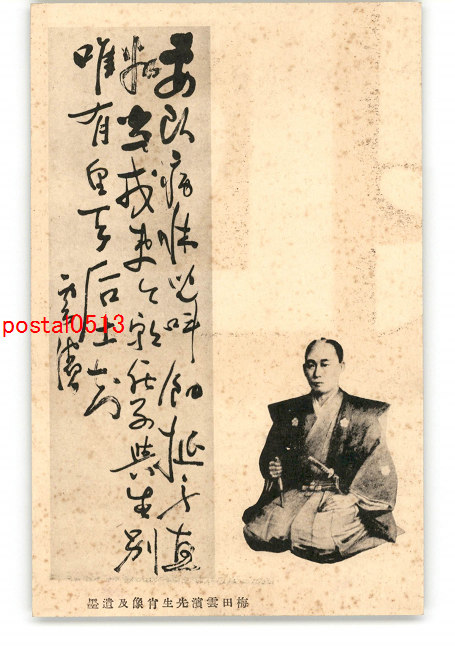 妻臥病牀児叫飢挺身直
欲當戎夷今朝死別與生別
唯有皇天后土知
雲濱
梅田雲濱先生肖像及遺墨
postal0513